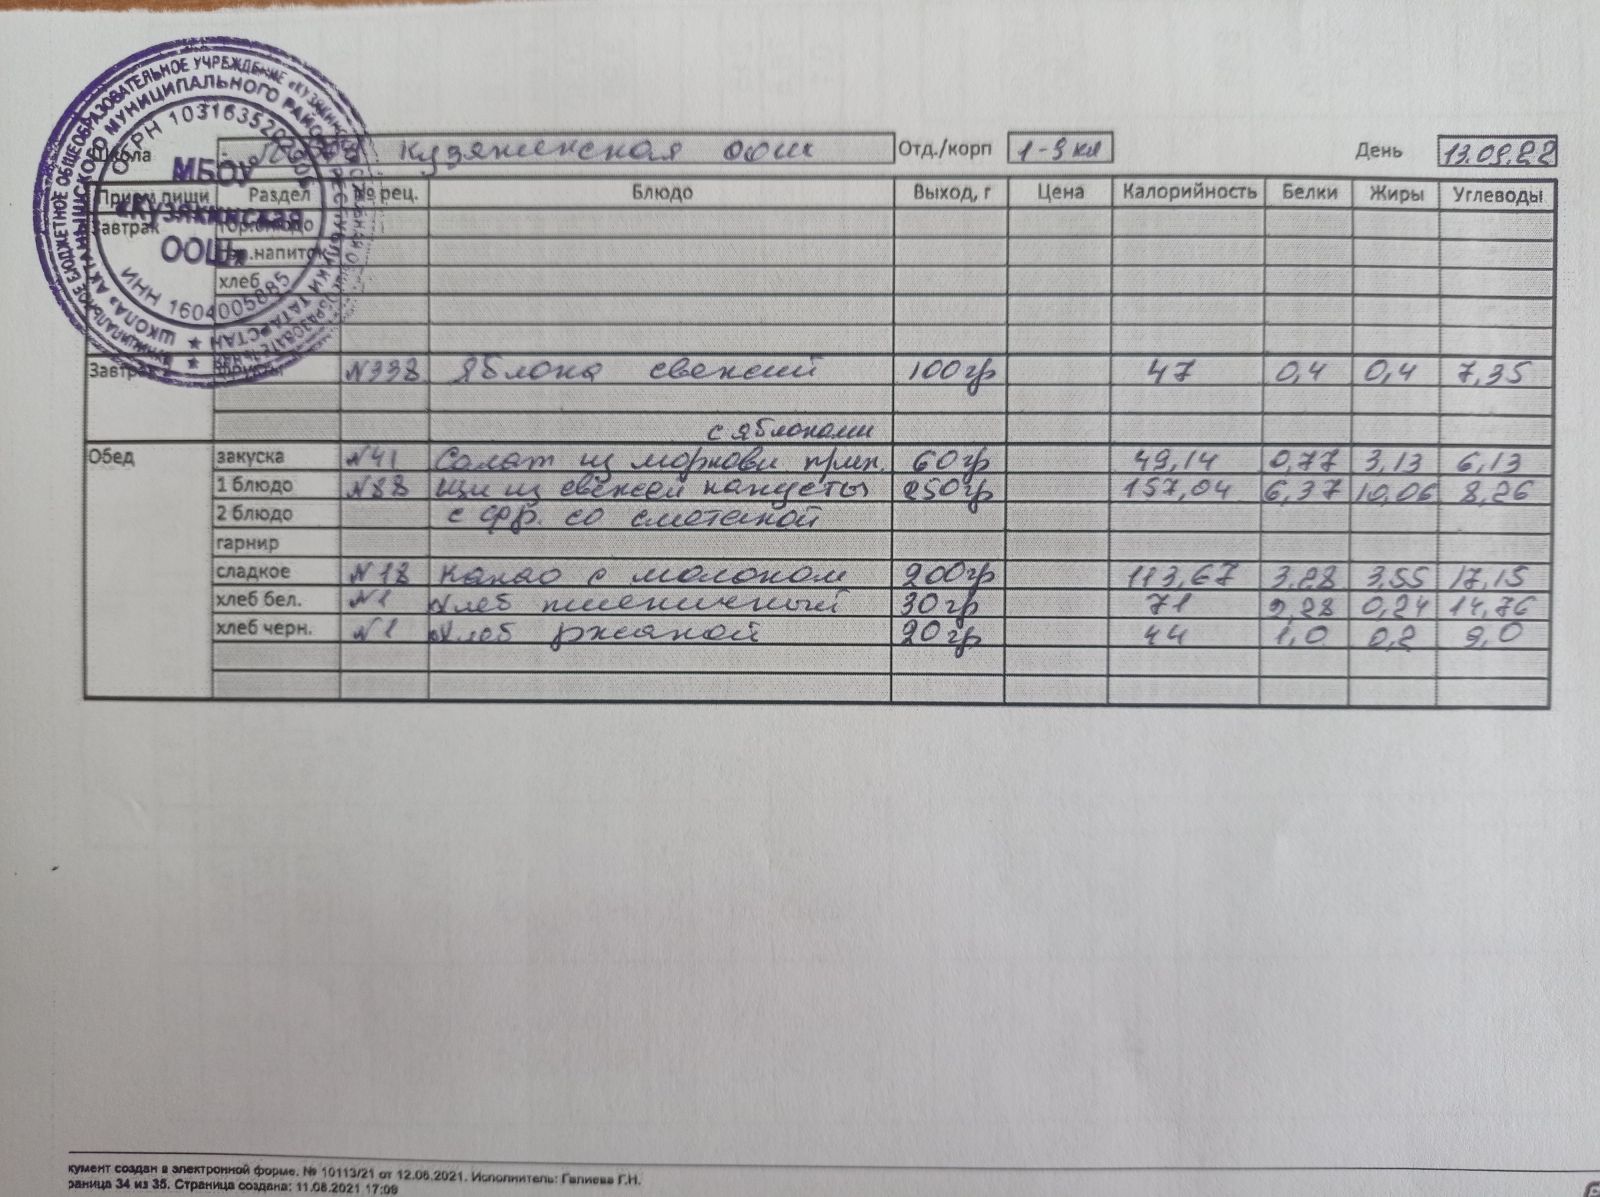 МУНИЦИПАЛЬНОЕ БЮДЖЕТНОЕ ОБЩЕОБРАЗОВАТЕЛЬНОЕ УЧРЕЖДЕНИЕ «КУЗЯКИНСКАЯ
ШКОЛА» АКТАНЫШСКОГО МУНИЦИПАЛЬНОГО РАЙОНА РЕСПУБЛИКИ ТАТАРСТАН
ОГРН
ИНН 1604005885
МБОУ
«Кузякинская
ООШ»
Школа МБОУ Кузякинская ООШ Отд./корп 1-9 кл День 13.09.22
Прием пищи Раздел № рец. Блюдо Выход, г Цена Калорийность Белки Жиры Углеводы
Завтрак гор.блюдо
гор.напиток
хлеб
Завтрак 2 фрукты N338 Яблоко свежий 100гр 47 0,4 0,4 7,35
с яблоками
Обед закуска N41 Салат из моркови 60гр 49,14 0,77 3,13 6,13
1 блюдо N88 Щи из свежей капусты 250гр 157,04 6,37 10,06 8,26
2 блюдо с фр. со сметаной
гарнир
сладкое N18 Какао с молоком 200гр 113,67 3,28 3,55 17,15
хлеб бел. N1 Хлеб пшеничный 30гр 71 2,28 0,24 14,76
хлеб черн. N1 Хлеб ржаной 20гр 44 1,0 0,2 9,0
кумент создан в электронной форме. № 10113/21 от 12.08.2021. Исполнитель: Галиева Г.Н.
раница 34 из 35. Страница создана: 11.08.2021 17:09